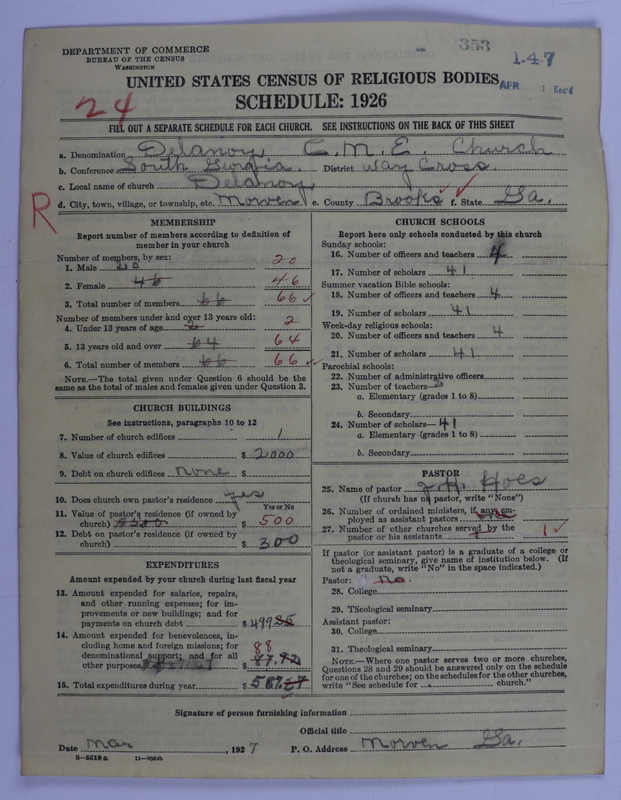 353
1-47
DEPARTMENT OF COMMERCE
BUREAU OF THE CENSUS
WASHINGTON
APR 1
UNITED STATES CENSUS OF RELIGIOUS BODIES
24
SCHEDULE: 1926
FILL OUT A SEPARATE SCHEDULE FOR EACH CHURCH. SEE INSTRUCTIONS ON THE BACK OF THIS SHEET
a. Denomination Delanoy C.M.E. Church
b. Conference South Gorgia. District Way Cross.
c. Local name of church Delanoy
R
d. City, town, village, or township, etc. Morven e. County Brooks ✓ f. State Ga.
MEMBERSHIP
Report number of members according to definition of
member in your church
Number of members, by sex:
1. Male 20
2. Female 46 46
3. Total number of members 66 66 ✓
Number of members under and over 13 years old:
4. Under 13 years of age 2 2
5. 13 years old and over 64 64
6. Total number of members 66 66 ✓
NOTE.—The total given under Question 6 should be the
same as the total of males and females given under Question 3.
CHURCH BUILDINGS
See instructions, paragraphs 10 to 12
7. Number of church edifices 1
8. Value of church edifices $ 2000
9. Debt on church edifices none $
10. Does church own pastor's residence yes
Yes or No
11. Value of pastor's residence (if owned by
church) $500 $ 500
12. Debt on pastor's residence (if owned by
church) $ 300
EXPENDITURES
Amount expended by your church during last fiscal year
13. Amount expended for salaries, repairs,
and other running expenses; for im-
provements or new buildings; and for
payments on church debt $ 499.85
14. Amount expended for benevolences, in-
cluding home and foreign missions; for 88
denominational support; and for all
other purposes $ 87.82
15. Total expenditures during year $ 587.67
CHURCH SCHOOLS
Report here only schools conducted by this church
Sunday schools:
16. Number of officers and teachers 4
17. Number of scholars 41
Summer vacation Bible schools:
18. Number of officers and teachers 4
19. Number of scholars 41
Week-day religious schools:
20. Number of officers and teachers 4
21. Number of scholars 41
Parochial schools:
22. Number of administrative officers
23. Number of teachers—
a. Elementary (grades 1 to 8)
b. Secondary
24. Number of scholars— 41
a. Elementary (grades 1 to 8)
b. Secondary
PASTOR
25. Name of pastor J.H. Hoes
(If church has no pastor, write "None")
26. Number of ordained ministers, if any em-
ployed as assistant pastors
27. Number of other churches served by the
pastor or his assistants 1 ✓
If pastor (or assistant pastor) is a graduate of a college or
theological seminary, give name of institution below. (If
not a graduate, write "No" in the space indicated.)
Pastor: no.
28. College
29. Theological seminary
Assistant pastor:
30. College
31. Theological seminary
NOTE.—Where one pastor serves two or more churches,
Questions 28 and 29 should be answered only on the schedule
for one of the churches; on the schedules for the other churches,
write "See schedule for church."
Signature of person furnishing information
Official title
Date Mar , 1927 P. O. Address Morven Ga.
8—5518a 11—9054b